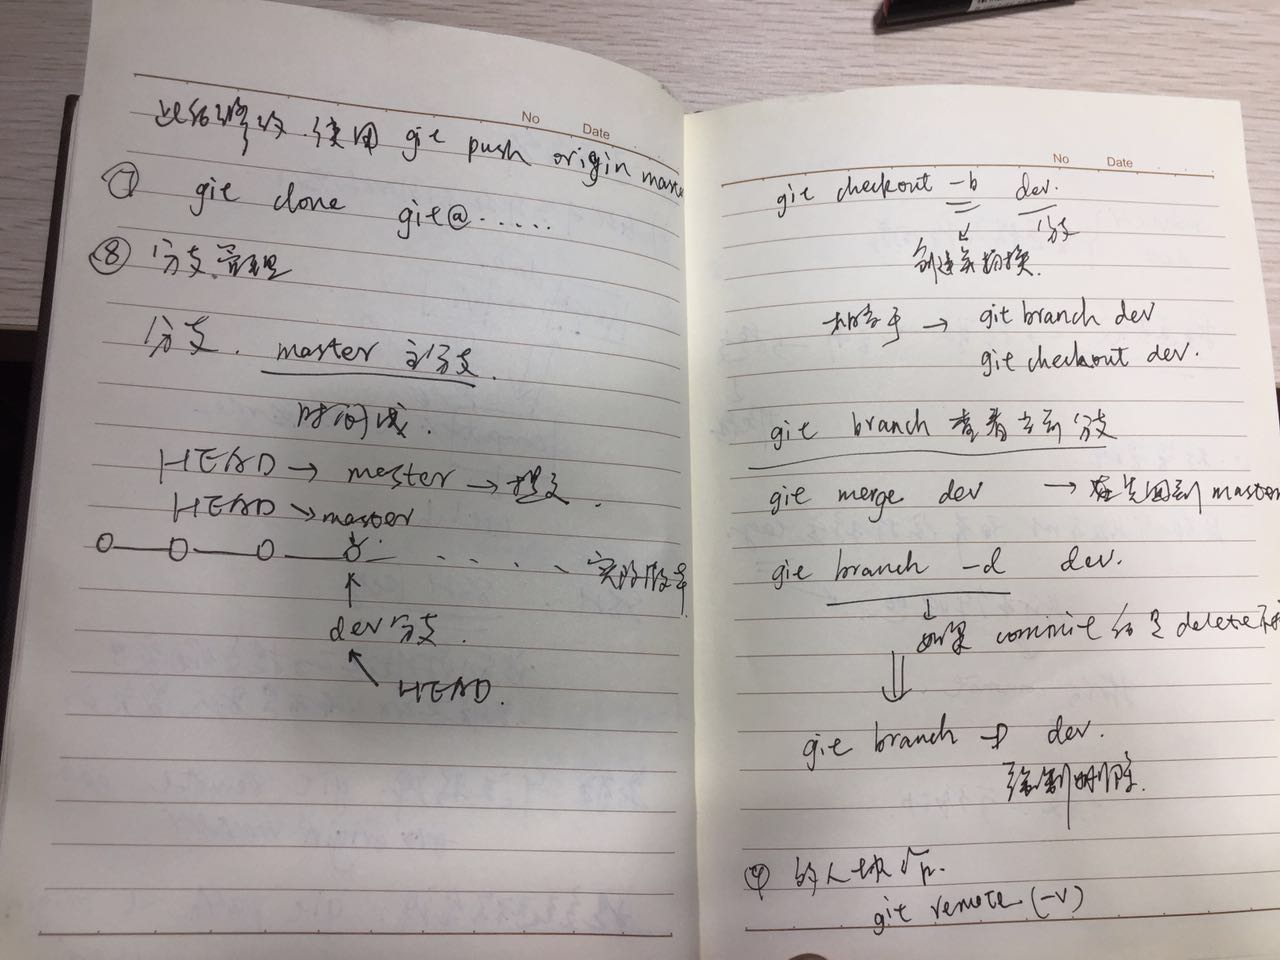 No Date
此后修改.使用 git push origin maste
⑦ git clone git@......
⑧ 分支管理
分支. master 主分支.
时间线.
HEAD → master → 提交.
HEAD ↘ master
dev分支.
HEAD.
No Date
git checkout -b dev.
分支
创建并切换.
相当于 → git branch dev
git checkout dev.
git branch 查看当前分支
git merge dev → 在先回到 master
git branch -d dev.
如果 commit 后是 delete
git branch -D dev.
强制删除.
git remote (-v)